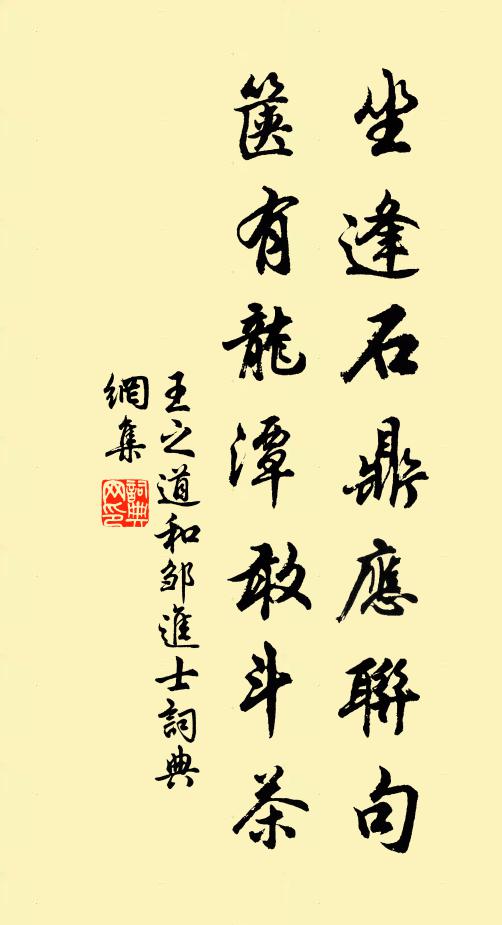 坐逢石鼎應聯句
篋有龍潭敢斗茶
王之道和邹進士詞典
網集
詞典
网印